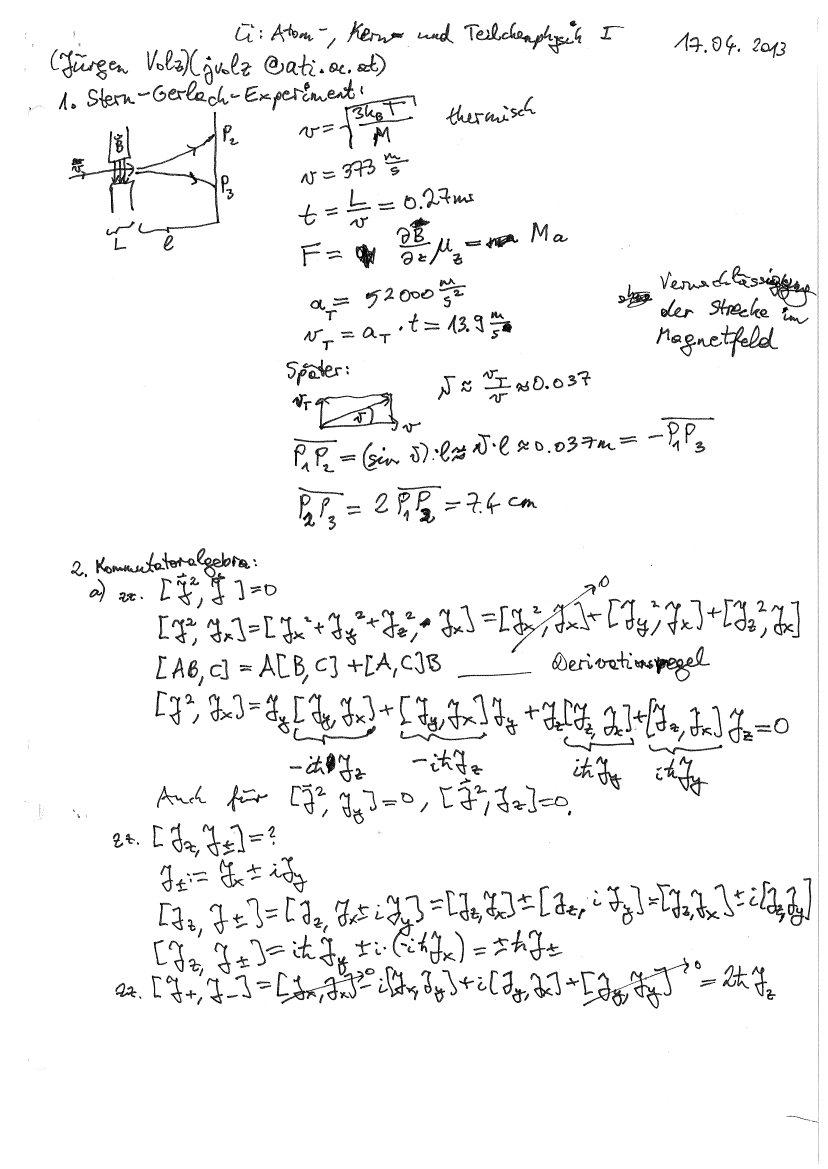 Ü: Atom-, Kern- und Teilchenphysik I 17.04.2013
(Jürgen Volz)(jvolz@ati.ac.at)
1. Stern-Gerlach-Experiment:
B⃗ v⃗ P₂ P₃ L l
v = √(3k_B T / M) thermisch
v = 373 m/s
t = L/v = 0.27ms
F = ∂B⃗/∂z μ_z = Ma
a_T = 52000 m/s²
v_T = a_T · t = 13.9 m/s
Vernachlässigung
der Strecke im
Magnetfeld
Später:
v_T ϑ v
ϑ ≈ v_T/v ≈ 0.037
P₁P₂ = (sin ϑ)·l ≈ ϑ·l ≈ 0.037m = -P₁P₃
P₂P₃ = 2 P₁P₂ = 7.4 cm
2. Kommutatoralgebra:
a) zz. [J⃗², J⃗] = 0
[J², J_x] = [J_x² + J_y² + J_z², J_x] = [J_x², J_x] → 0 + [J_y², J_x] + [J_z², J_x]
[AB, C] = A[B, C] + [A, C]B ____ Derivationsregel
[J², J_x] = J_y [J_y, J_x] + [J_y, J_x] J_y + J_z [J_z, J_x] + [J_z, J_x] J_z = 0
-iħJ_z -iħJ_z iħJ_y iħJ_y
Auch für [J⃗², J_y] = 0, [J⃗², J_z] = 0.
zz. [J_z, J_±] = ?
J_± := J_x ± iJ_y
[J_z, J_±] = [J_z, J_x ± iJ_y] = [J_z, J_x] ± [J_z, iJ_y] = [J_z, J_x] ± i[J_z, J_y]
[J_z, J_±] = iħJ_y ± i·(-iħJ_x) = ±ħJ_±
zz. [J_+, J_-] = [J_x, J_x] → 0 - i[J_x, J_y] + i[J_y, J_x] + [J_y, J_y] → 0 = 2ħJ_z